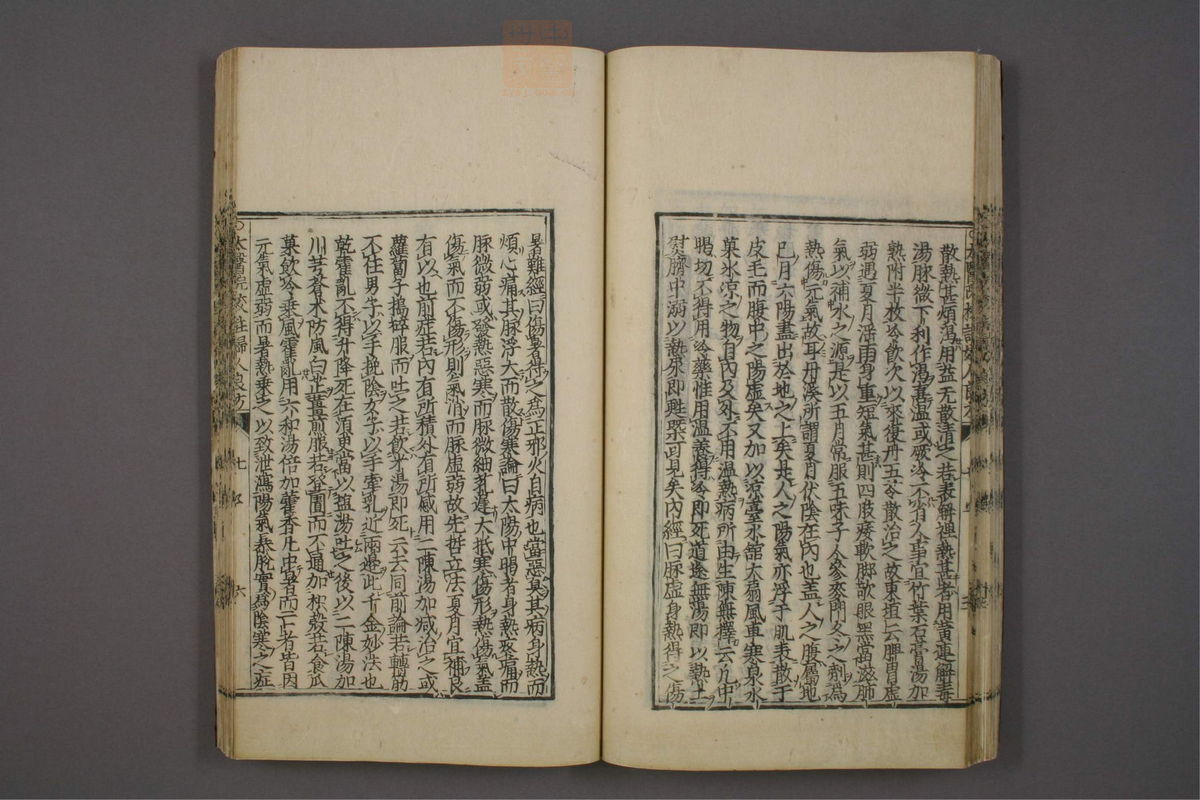 散熱甚煩渴用益元散清之若表解裡熱甚者用黃連解毒
湯脉微下利作渴喜温或厥冷不省人事宜竹葉石膏湯加
熟附半枚冷飲次以來復丹五苓散治之故東垣云脾胃虛
弱遇夏月淫雨身重短氣甚則四肢痿軟脚欹眼黑當滋肺
氣以補水之源是以五月常服五味子人參麥門冬之劑為
熱傷元氣故耳丹溪所謂夏月伏陰在內也蓋人之腹屬地
巳月六陽盡出於地之上矣是人之陽氣亦浮于肌表散于
皮毛而腹中之陽虛矣又加以凉臺水舘大扇風車寒泉水
菓氷涼之物自內及外不用温熱病所由生陳無擇云凡中
暍切不得用冷藥惟用温養得冷即死道途無湯即以熱土
熨臍中溺以熱尿即甦槩可見矣內經曰脉虛身熱得之傷
暑難經曰傷暑得之為正邪火自病也當惡臭其病身熱而
煩心痛其脉浮大而散傷寒論曰太陽中暍者身熱疼痛而
脉微弱或發熱惡寒而脉微細芤遲大抵寒傷形熱傷氣蓋
傷氣而不傷形則氣消而脉虛弱故先哲立法夏月宜補良
有以也前症若內有所積外有所感用二陳湯加减治之或
蘿蔔子搗碎服而吐之若飲米湯即死 云云同前論若轉筋
不住男子以手挽陰女子以手牽乳近兩邊此千金妙法也
乾霍亂不得升降死在須臾當以鹽湯吐之後以二陳湯加
川芎蒼术防風白芷薑煎服若登圊而不通加枳殼若食瓜
菓飲冷乗風霍亂用六和湯倍加藿香凡中暑而亡者皆因
元氣虛弱而暑熱乗之以致泄瀉陽氣𭧂脫實為陰寒之症
太醫院校註婦人良方
七 六